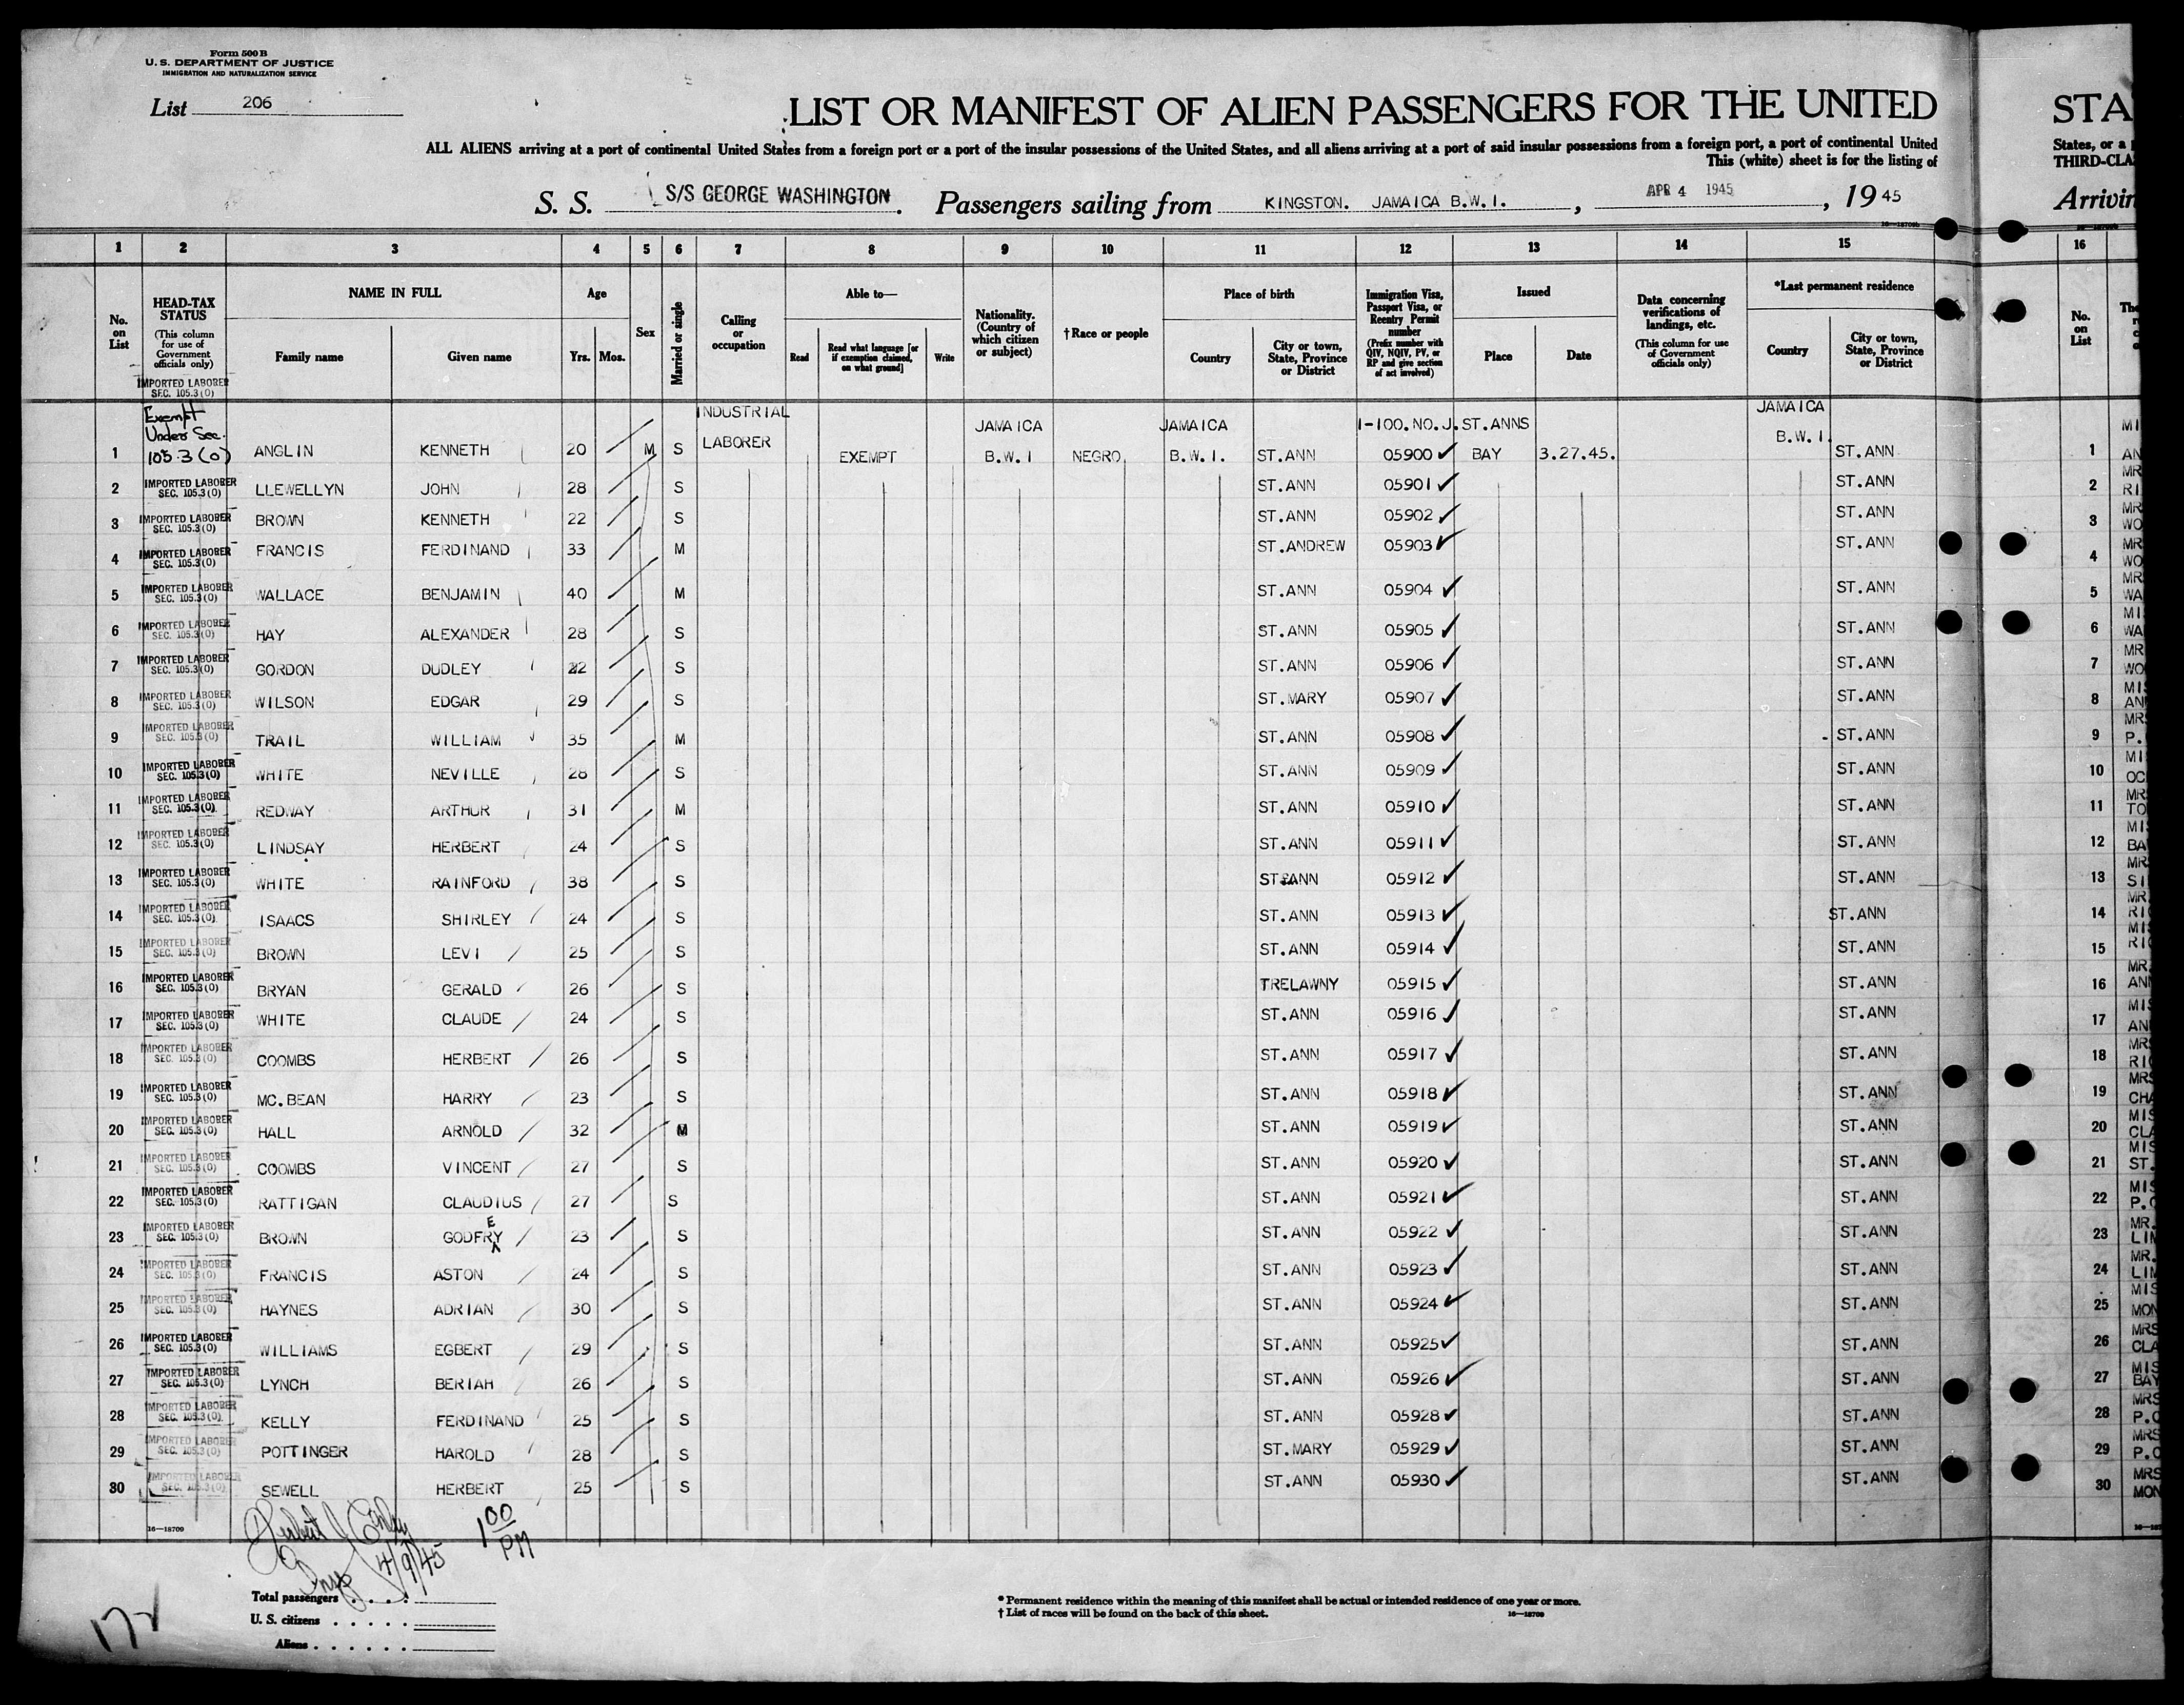 Form 500 B
U. S. DEPARTMENT OF JUSTICE
IMMIGRATION AND NATURALIZATION SERVICE
List 206
LIST OR MANIFEST OF ALIEN PASSENGERS FOR THE UNITED STA
ALL ALIENS arriving at a port of continental United States from a foreign port or a port of the insular possessions of the United States, and all aliens arriving at a port of said insular possessions from a foreign port, a port of continental United States, or a
This (white) sheet is for the listing of THIRD-CLA
S. S. S/S GEORGE WASHINGTON. Passengers sailing from KINGSTON. JAMAICA B.W.I., APR 4 1945, 1945 Arrivin
1 2 3 4 5 6 7 8 9 10 11 12 13 14 15 16
No. on List
HEAD-TAX STATUS
(This column for use of Government officials only)
NAME IN FULL
Family name Given name
Age
Yrs. Mos.
Sex
Married or single
Calling or occupation
Able to—
Read
Read what language [or if exemption claimed, on what ground]
Write
Nationality. (Country of which citizen or subject)
†Race or people
Place of birth
Country
City or town, State, Province or District
Immigration Visa, Passport Visa, or Reentry Permit number
(Prefix number with QIV, NQIV, PV, or RP and give section of act involved)
Issued
Place Date
Data concerning verifications of landings, etc.
(This column for use of Government officials only)
*Last permanent residence
Country
City or town, State, Province or District
No. on List
IMPORTED LABORER SEC. 105.3(0)
1 Exempt Under Sec. 105.3(0) ANGLIN KENNETH 20 M S INDUSTRIAL LABORER EXEMPT JAMAICA B.W.I NEGRO JAMAICA B.W.I. ST.ANN I-100.NO.J. 05900 ST.ANNS BAY 3.27.45. JAMAICA B.W.I. ST.ANN 1
2 IMPORTED LABORER SEC. 105.3(0) LLEWELLYN JOHN 28 S ST.ANN 05901 ST.ANN 2
3 IMPORTED LABORER SEC. 105.3(0) BROWN KENNETH 22 S ST.ANN 05902 ST.ANN 3
4 IMPORTED LABORER SEC. 105.3(0) FRANCIS FERDINAND 33 M ST.ANDREW 05903 ST.ANN 4
5 IMPORTED LABORER SEC. 105.3(0) WALLACE BENJAMIN 40 M ST.ANN 05904 ST.ANN 5
6 IMPORTED LABORER SEC. 105.3(0) HAY ALEXANDER 28 S ST.ANN 05905 ST.ANN 6
7 IMPORTED LABORER SEC. 105.3(0) GORDON DUDLEY 22 S ST.ANN 05906 ST.ANN 7
8 IMPORTED LABORER SEC. 105.3(0) WILSON EDGAR 29 S ST.MARY 05907 ST.ANN 8
9 IMPORTED LABORER SEC. 105.3(0) TRAIL WILLIAM 35 M ST.ANN 05908 ST.ANN 9
10 IMPORTED LABORER SEC. 105.3(0) WHITE NEVILLE 28 S ST.ANN 05909 ST.ANN 10
11 IMPORTED LABORER SEC. 105.3(0) REDWAY ARTHUR 31 M ST.ANN 05910 ST.ANN 11
12 IMPORTED LABORER SEC. 105.3(0) LINDSAY HERBERT 24 S ST.ANN 05911 ST.ANN 12
13 IMPORTED LABORER SEC. 105.3(0) WHITE RAINFORD 38 S ST.ANN 05912 ST.ANN 13
14 IMPORTED LABORER SEC. 105.3(0) ISAACS SHIRLEY 24 S ST.ANN 05913 ST.ANN 14
15 IMPORTED LABORER SEC. 105.3(0) BROWN LEVI 25 S ST.ANN 05914 ST.ANN 15
16 IMPORTED LABORER SEC. 105.3(0) BRYAN GERALD 26 S TRELAWNY 05915 ST.ANN 16
17 IMPORTED LABORER SEC. 105.3(0) WHITE CLAUDE 24 S ST.ANN 05916 ST.ANN 17
18 IMPORTED LABORER SEC. 105.3(0) COOMBS HERBERT 26 S ST.ANN 05917 ST.ANN 18
19 IMPORTED LABORER SEC. 105.3(0) MC.BEAN HARRY 23 S ST.ANN 05918 ST.ANN 19
20 IMPORTED LABORER SEC. 105.3(0) HALL ARNOLD 32 M ST.ANN 05919 ST.ANN 20
21 IMPORTED LABORER SEC. 105.3(0) COOMBS VINCENT 27 S ST.ANN 05920 ST.ANN 21
22 IMPORTED LABORER SEC. 105.3(0) RATTIGAN CLAUDIUS 27 S ST.ANN 05921 ST.ANN 22
23 IMPORTED LABORER SEC. 105.3(0) BROWN GODFREY 23 S ST.ANN 05922 ST.ANN 23
24 IMPORTED LABORER SEC. 105.3(0) FRANCIS ASTON 24 S ST.ANN 05923 ST.ANN 24
25 IMPORTED LABORER SEC. 105.3(0) HAYNES ADRIAN 30 S ST.ANN 05924 ST.ANN 25
26 IMPORTED LABORER SEC. 105.3(0) WILLIAMS EGBERT 29 S ST.ANN 05925 ST.ANN 26
27 IMPORTED LABORER SEC. 105.3(0) LYNCH BERIAH 26 S ST.ANN 05926 ST.ANN 27
28 IMPORTED LABORER SEC. 105.3(0) KELLY FERDINAND 25 S ST.ANN 05928 ST.ANN 28
29 IMPORTED LABORER SEC. 105.3(0) POTTINGER HAROLD 28 S ST.MARY 05929 ST.ANN 29
30 IMPORTED LABORER SEC. 105.3(0) SEWELL HERBERT 25 S ST.ANN 05930 ST.ANN 30
16—18709
4/9/45
1 00 PM
Total passengers
U. S. citizens
Aliens
* Permanent residence within the meaning of this manifest shall be actual or intended residence of one year or more.
† List of races will be found on the back of this sheet.
16—18709
172